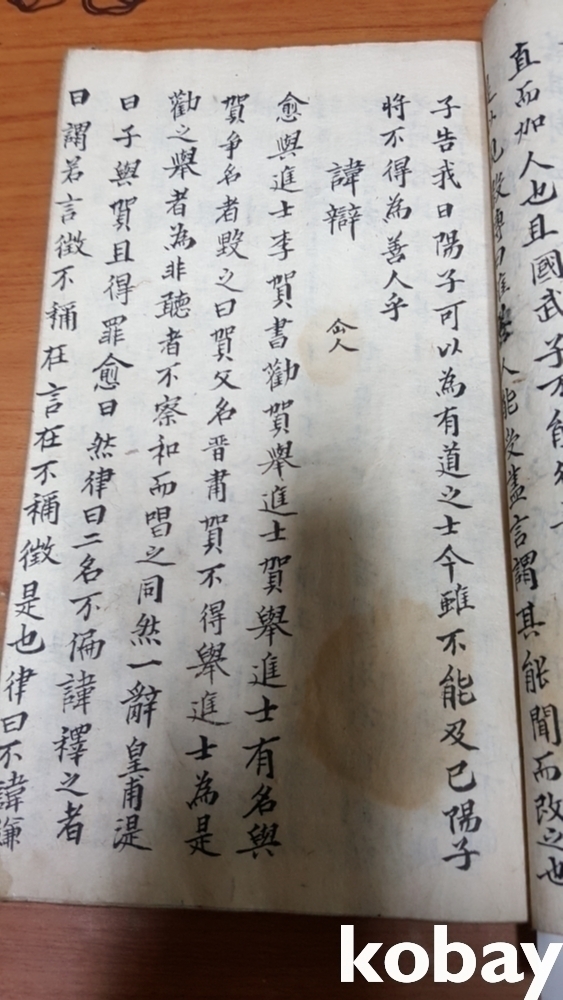 直而加人也且國武子不能
人能受盡言謂其能聞而改之也
子告我曰陽子可以為有道之士今雖不能及已陽子
将不得為善人乎
諱辯 仝人
愈與進士李賀書勸賀舉進士賀舉進士有名與
賀争名者毀之曰賀父名晋肅賀不得舉進士為是
勸之舉者為非聽者不察和而唱之同然一辭皇甫湜
曰子與賀且得罪愈曰然律曰二名不偏諱釋之者
曰謂若言徵不稱在言在不稱徵是也律曰不諱嫌
kobay